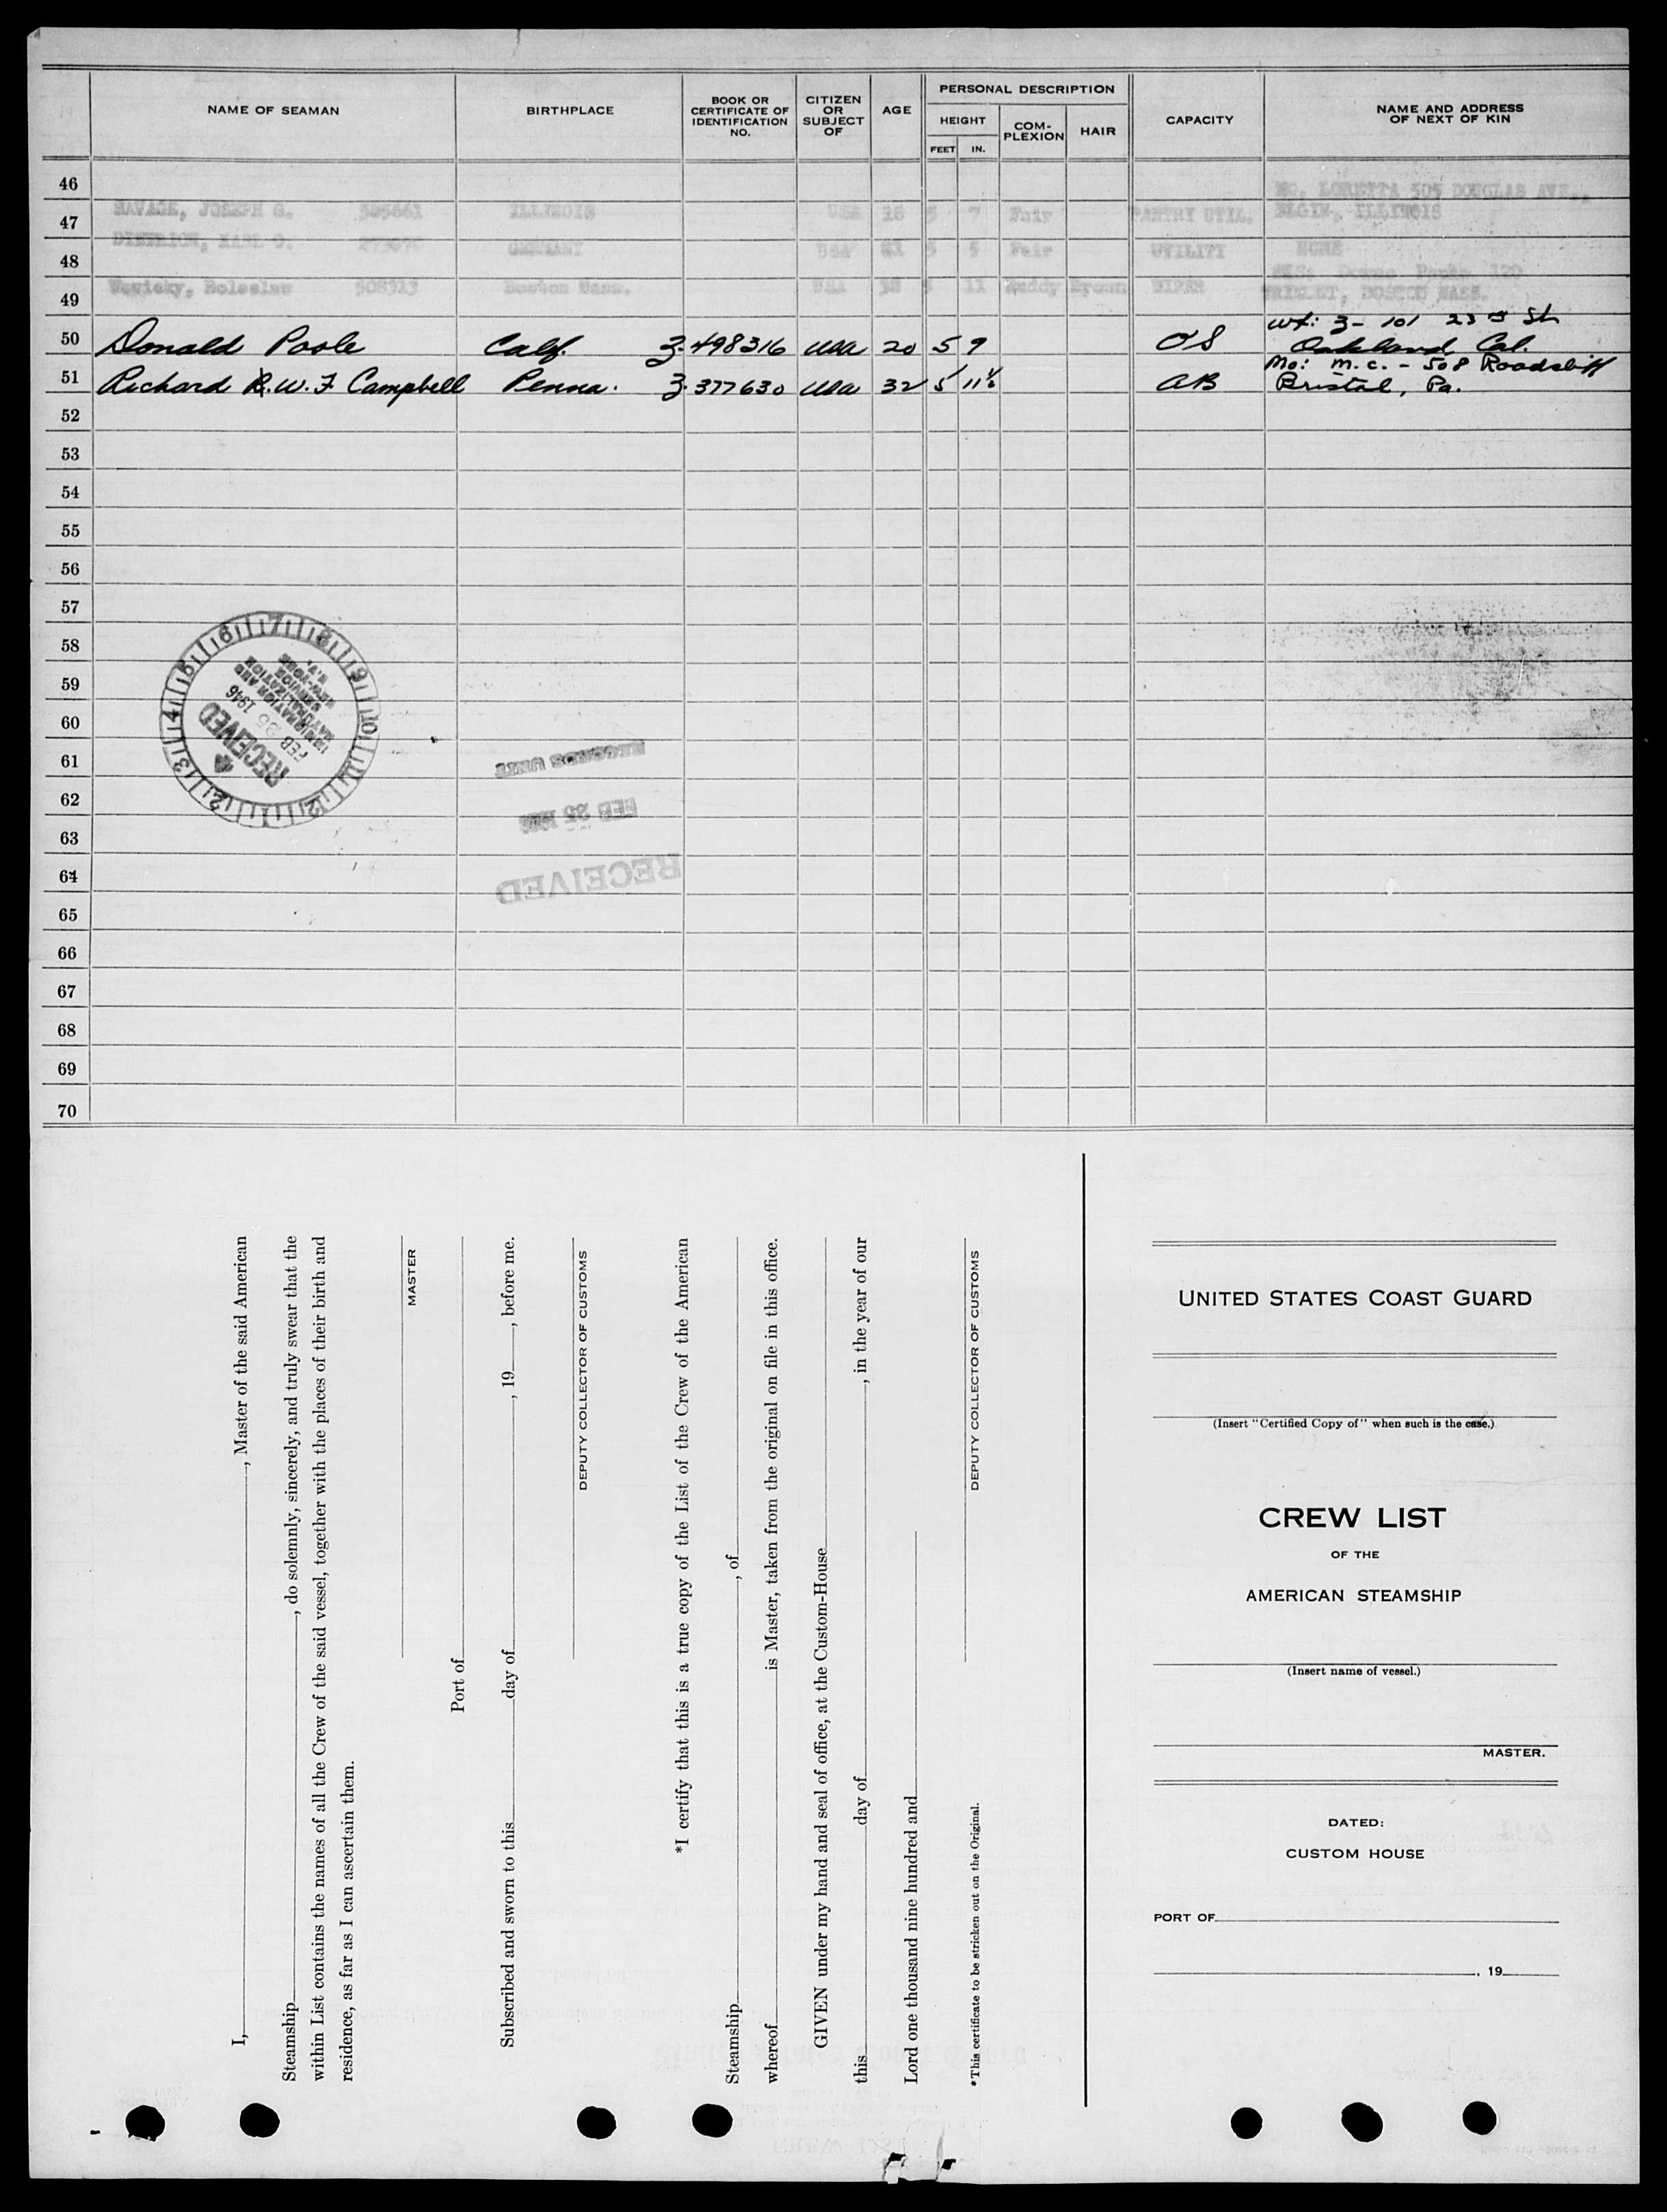 NAME OF SEAMAN BIRTHPLACE BOOK OR CERTIFICATE OF IDENTIFICATION NO. CITIZEN OR SUBJECT OF AGE PERSONAL DESCRIPTION HEIGHT FEET IN. COM-PLEXION HAIR CAPACITY NAME AND ADDRESS OF NEXT OF KIN
46
MO. LORETTA 505 DOUGLAS AVE.,
47 SAVAGE, JOSEPH G. 505661 ILLINOIS USA 18 5 7 Fair PANTRY UTIL. ELGIN, ILLINOIS
48 DIETRICH, KARL O. GERMANY USA 5 5 Fair UTILITY NONE
49 Boleslaw 508313 Boston Mass. USA 38 5 11 Ruddy Brown WIPER BOSTON MASS.
Wf: 3- 101 23rd St
50 Donald Poole Calif. Z-498316 USA 20 5 9 OS Oakland, Cal.
Mo: M.C. - 508 Roadcliff
51 Richard R. W. F. Campbell Penna. Z-377630 USA 32 5 11½ AB Bristol, Pa.
52
53
54
55
56
57
58
59
60
61
62
63
64
65
66
67
68
69
70
RECEIVED
FEB 25 1946
IMMIGRATION AND
NATURALIZATION
SERVICE
NEW YORK
N.Y.
RECORDS UNIT
FEB 25 1946
RECEIVED
I, , Master of the said American
Steamship , do solemnly, sincerely, and truly swear that the
within List contains the names of all the Crew of the said vessel, together with the places of their birth and
residence, as far as I can ascertain them.
MASTER
Port of
Subscribed and sworn to this day of , 19 , before me.
DEPUTY COLLECTOR OF CUSTOMS
*I certify that this is a true copy of the List of the Crew of the American
Steamship , of
whereof is Master, taken from the original on file in this office.
GIVEN under my hand and seal of office, at the Custom-House
this day of , in the year of our
Lord one thousand nine hundred and
DEPUTY COLLECTOR OF CUSTOMS
*This certificate to be stricken out on the Original.
UNITED STATES COAST GUARD
(Insert "Certified Copy of" when such is the case.)
CREW LIST
OF THE
AMERICAN STEAMSHIP
(Insert name of vessel.)
MASTER.
DATED:
CUSTOM HOUSE
PORT OF
, 19